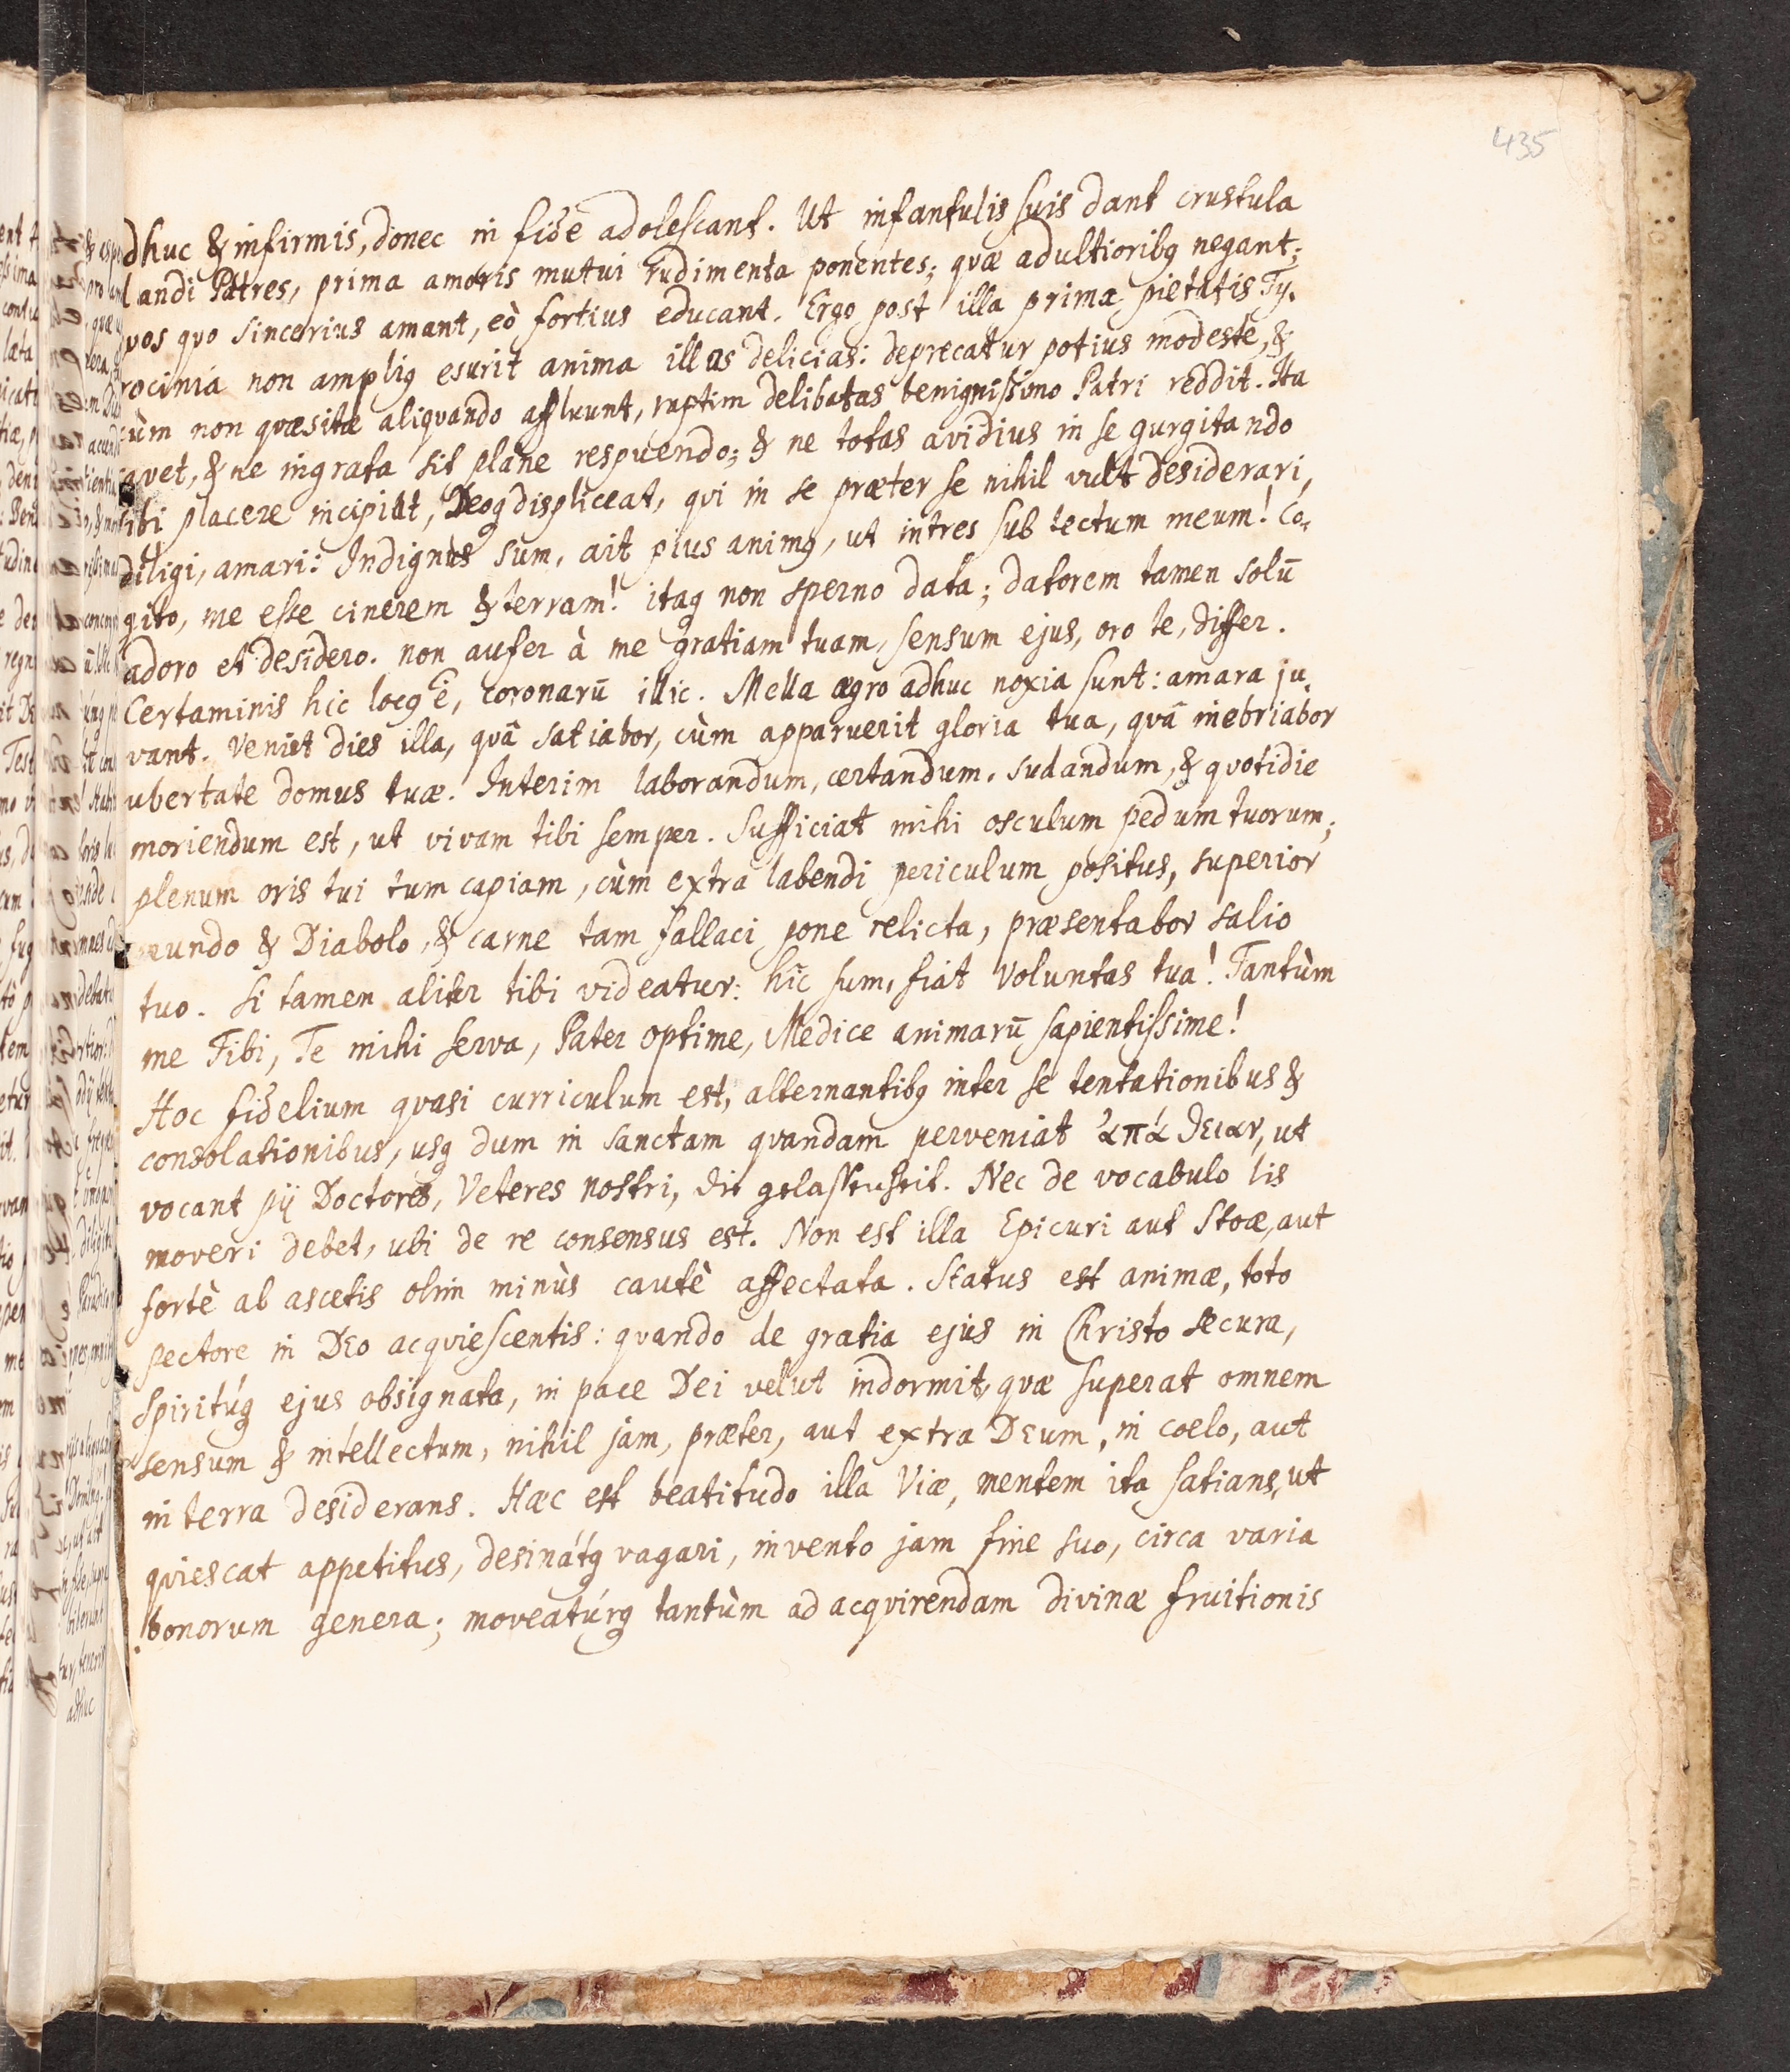 435
adhuc & infirmis, donec in fide adolescant. Ut infantulis suis dant crustula
blandi Patres, prima amoris mutui rudimenta ponentes; quæ adultioribꝗ negant;
quos quo sincerius amant, eò fortius educant. Ergo post illa prima pietatis Ty-
rocinia non ampliꝗ esurit anima illas delicias: deprecatur potius modestè, &
cùm non quæsitæ aliquando affluunt, raptim delibatas benignissimo Patri reddit. Ita
cavet, & ne ingrata sit planè respuendo; & ne totas avidius in se gurgitando
sibi placere incipiat, Deoꝗ displiceat, qui in se præter se nihil vult desiderari,
diligi, amari: Indignus sum, ait pius animꝗ, ut intres sub tectum meum! Co-
gito, me esse cinerem & terram! itaꝗ non sperno data; datorem tamen solū
adoro et desidero. non aufer à me gratiam tuam, sensum ejus, oro te, differ.
Certaminis hic locꝗ ē, coronarū illic. Mella ægro adhuc noxia sunt: amara ju-
vant. Veniet dies illa, quâ satiabor, cùm apparuerit gloria tua, quâ inebriabor
ubertate domus tuæ. Interim laborandum, certandum, sudandum, & quotidie
moriendum est, ut vivam tibi semper. Sufficiat mihi osculum pedum tuorum;
plenum oris tui tum capiam, cùm extra labendi periculum positus, superior
mundo & Diabolo, & carne tam fallaci pone relicta, præsentabor salio
tuo. Si tamen aliter tibi videatur: hîc sum, fiat voluntas tua! Tantùm
me Tibi, Te mihi serva, Pater optime, Medice animarū sapientissime!
Hoc fidelium quasi curriculum est, alternantibꝗ inter se tentationibus &
consolationibus, usꝗ dum in sanctam quandam perveniat ἀπάθειαν, ut
vocant pij Doctores, Veteres nostri, die gelassenheit. Nec de vocabulo lis
moveri debet, ubi de re consensus est. Non est illa Epicuri aut Stoæ, aut
fortè ab ascetis olim minùs cautè affectata. Status est animæ, toto
pectore in DEo acquiescentis: quando de gratia ejus in Christo secura,
Spiritúꝗ ejus obsignata, in pace Dei velut indormit, quæ superat omnem
sensum & intellectum, nihil jam, præter, aut extra DEum, in coelo, aut
in terra desiderans. Hæc est beatitudo illa Viæ, mentem ita satians, ut
quiescat appetitus, desinátꝗ vagari, invento jam fine suo, circa varia
bonorum genera; moveatúrꝗ tantùm ad acquirendam divinæ fruitionis